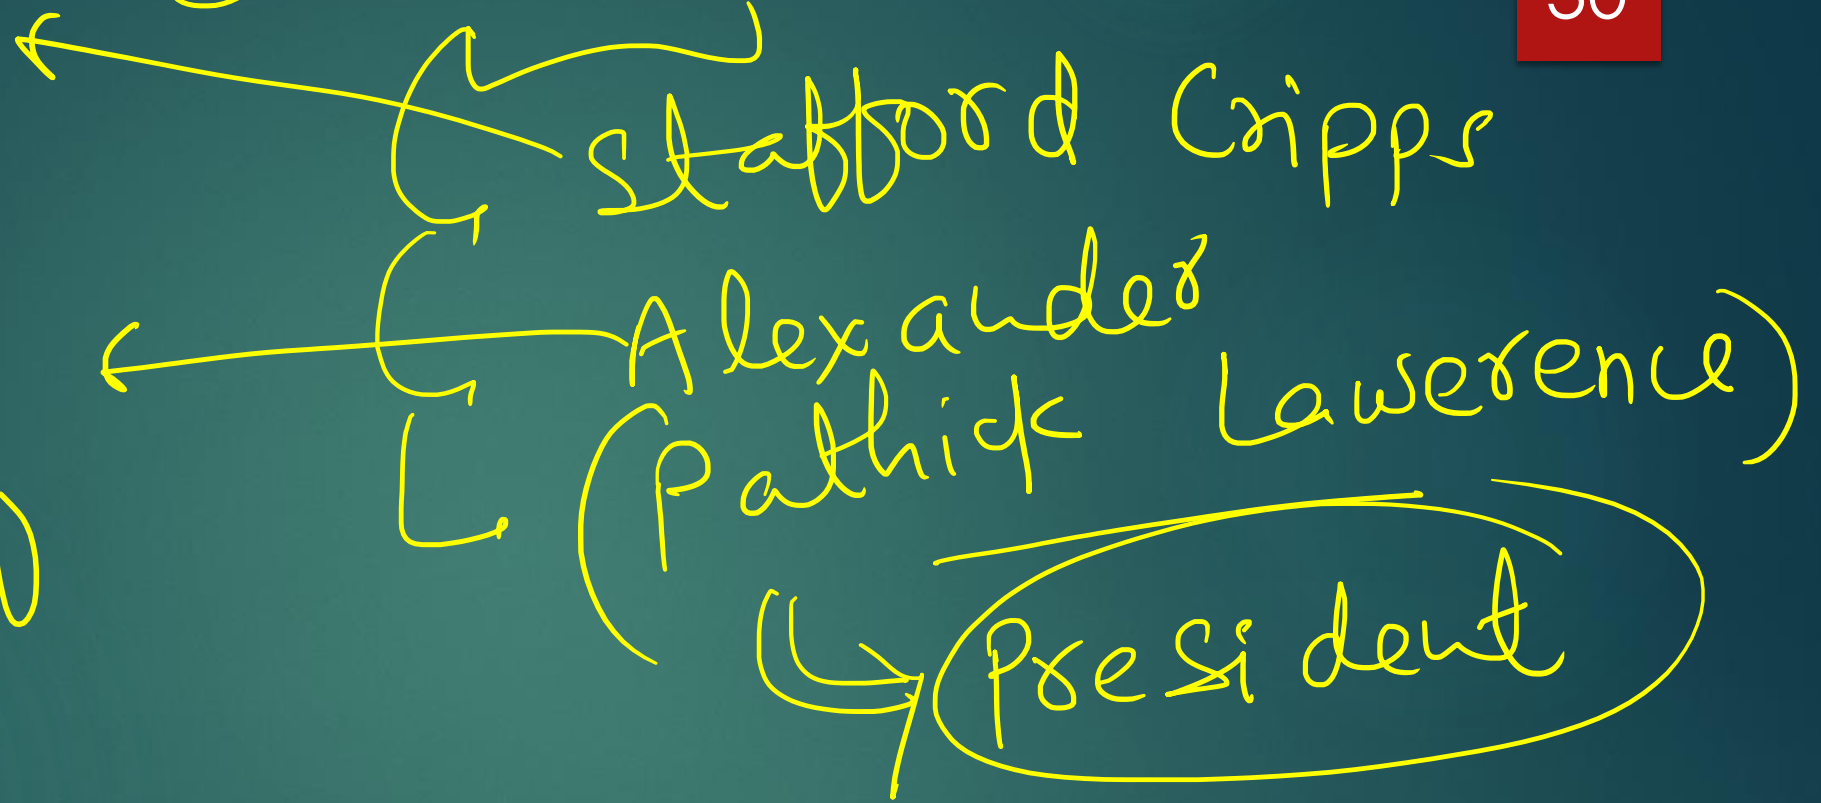 Stafford Cripps
Alexander
(Pathick Lawerence)
President